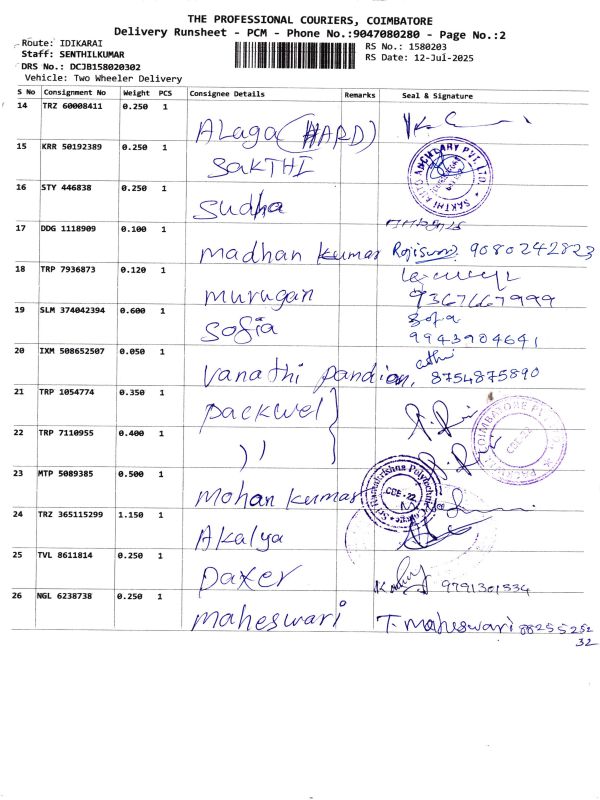 THE PROFESSIONAL COURIERS, COIMBATORE
Delivery Runsheet - PCM - Phone No.:9047080280 - Page No.:2
Route: IDIKARAI
RS No.: 1580203
Staff: SENTHILKUMAR
RS Date: 12-Jul-2025
DRS No.: DCJB158020302
Vehicle: Two Wheeler Delivery
S No Consignment No Weight PCS Consignee Details Remarks Seal & Signature
14 TRZ 60008411 0.250 1
ALaga (HARD)
15 KRR 50192389 0.250 1
SAKTHI
16 STY 446838 0.250 1
Sudha
17 DDG 1118909 0.100 1
madhan kumar 9080242823
18 TRP 7936873 0.120 1
murugan 9367667999
19 SLM 374042394 0.600 1
Sofia Sofa
9943904641
20 IXM 508652507 0.050 1
Vanathi pandian, 8754875890
21 TRP 1054774 0.350 1
packwel
22 TRP 7110955 0.400 1
))
23 MTP 5089385 0.500 1
mohan kumar
24 TRZ 365115299 1.150 1
Akalya
25 TVL 8611814 0.250 1
Daxer 9791301534
26 NGL 6238738 0.250 1
maheswari T. maheswari 88255252
32